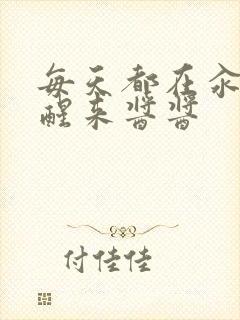 每天都在汆
醒来酱酱
付佳佳